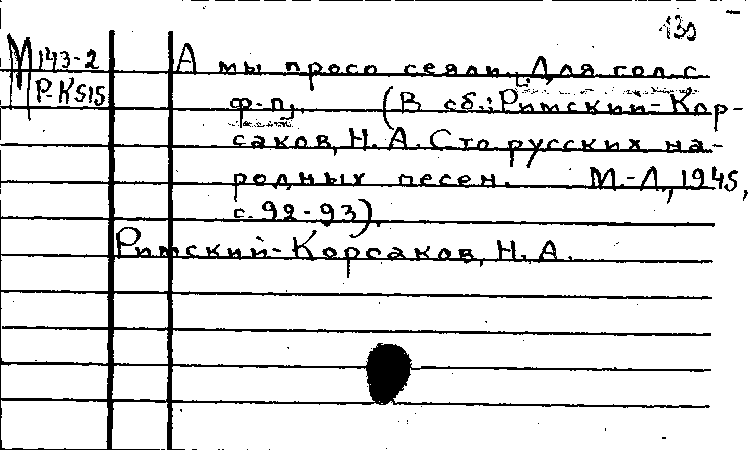 130
М 143-2
Р-К 515
А мы просо сеяли. Для гол. с
ф-п. (В сб.: Римский-Кор-
саков, Н. А. Сто русских на-
родных песен. М.-Л., 1945,
с. 92-93).
Римский-Корсаков, Н. А.